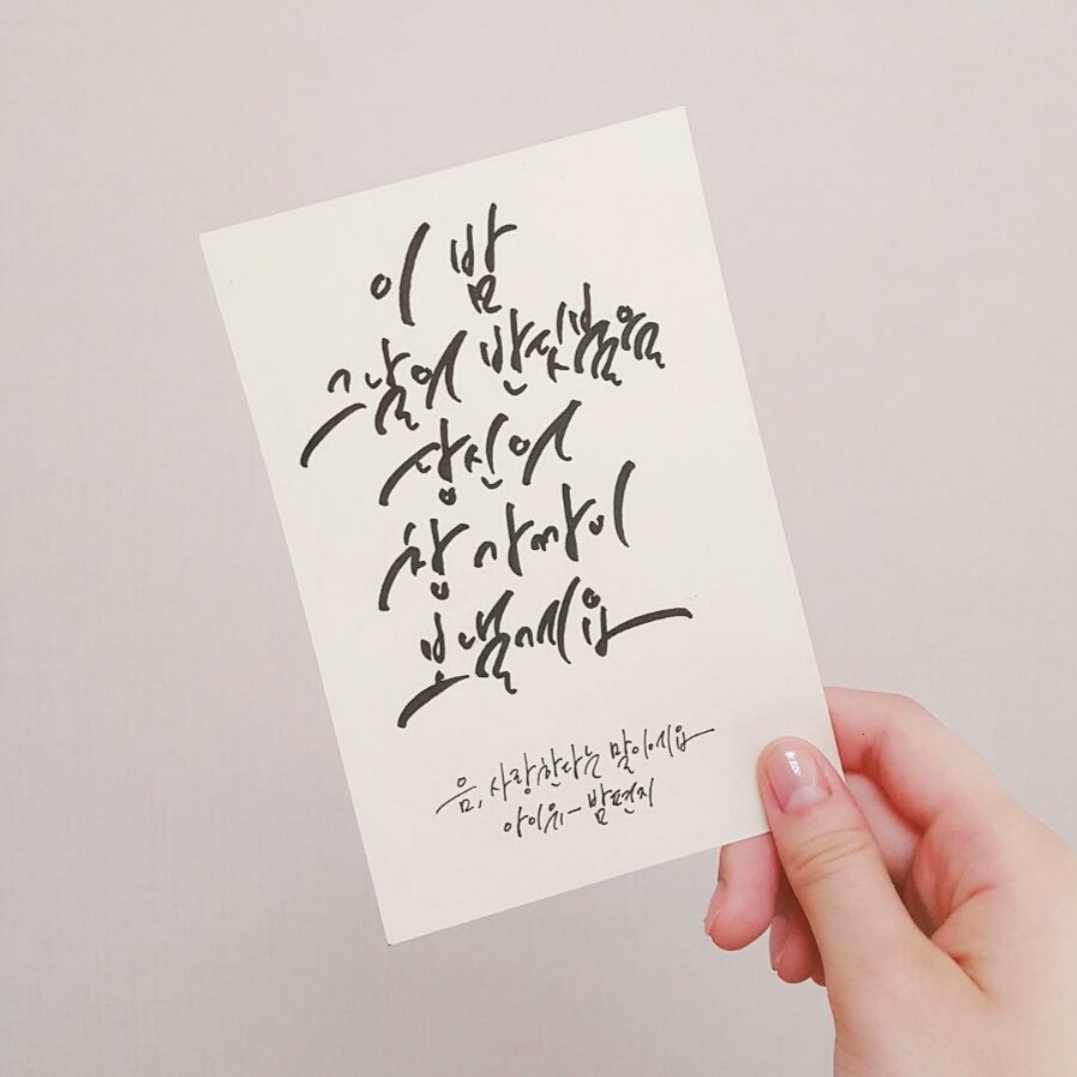 이 밤
그날의 반딧불을
당신의
창 가까이
보낼게요
음, 사랑한다는 말이에요
아이유 - 밤편지